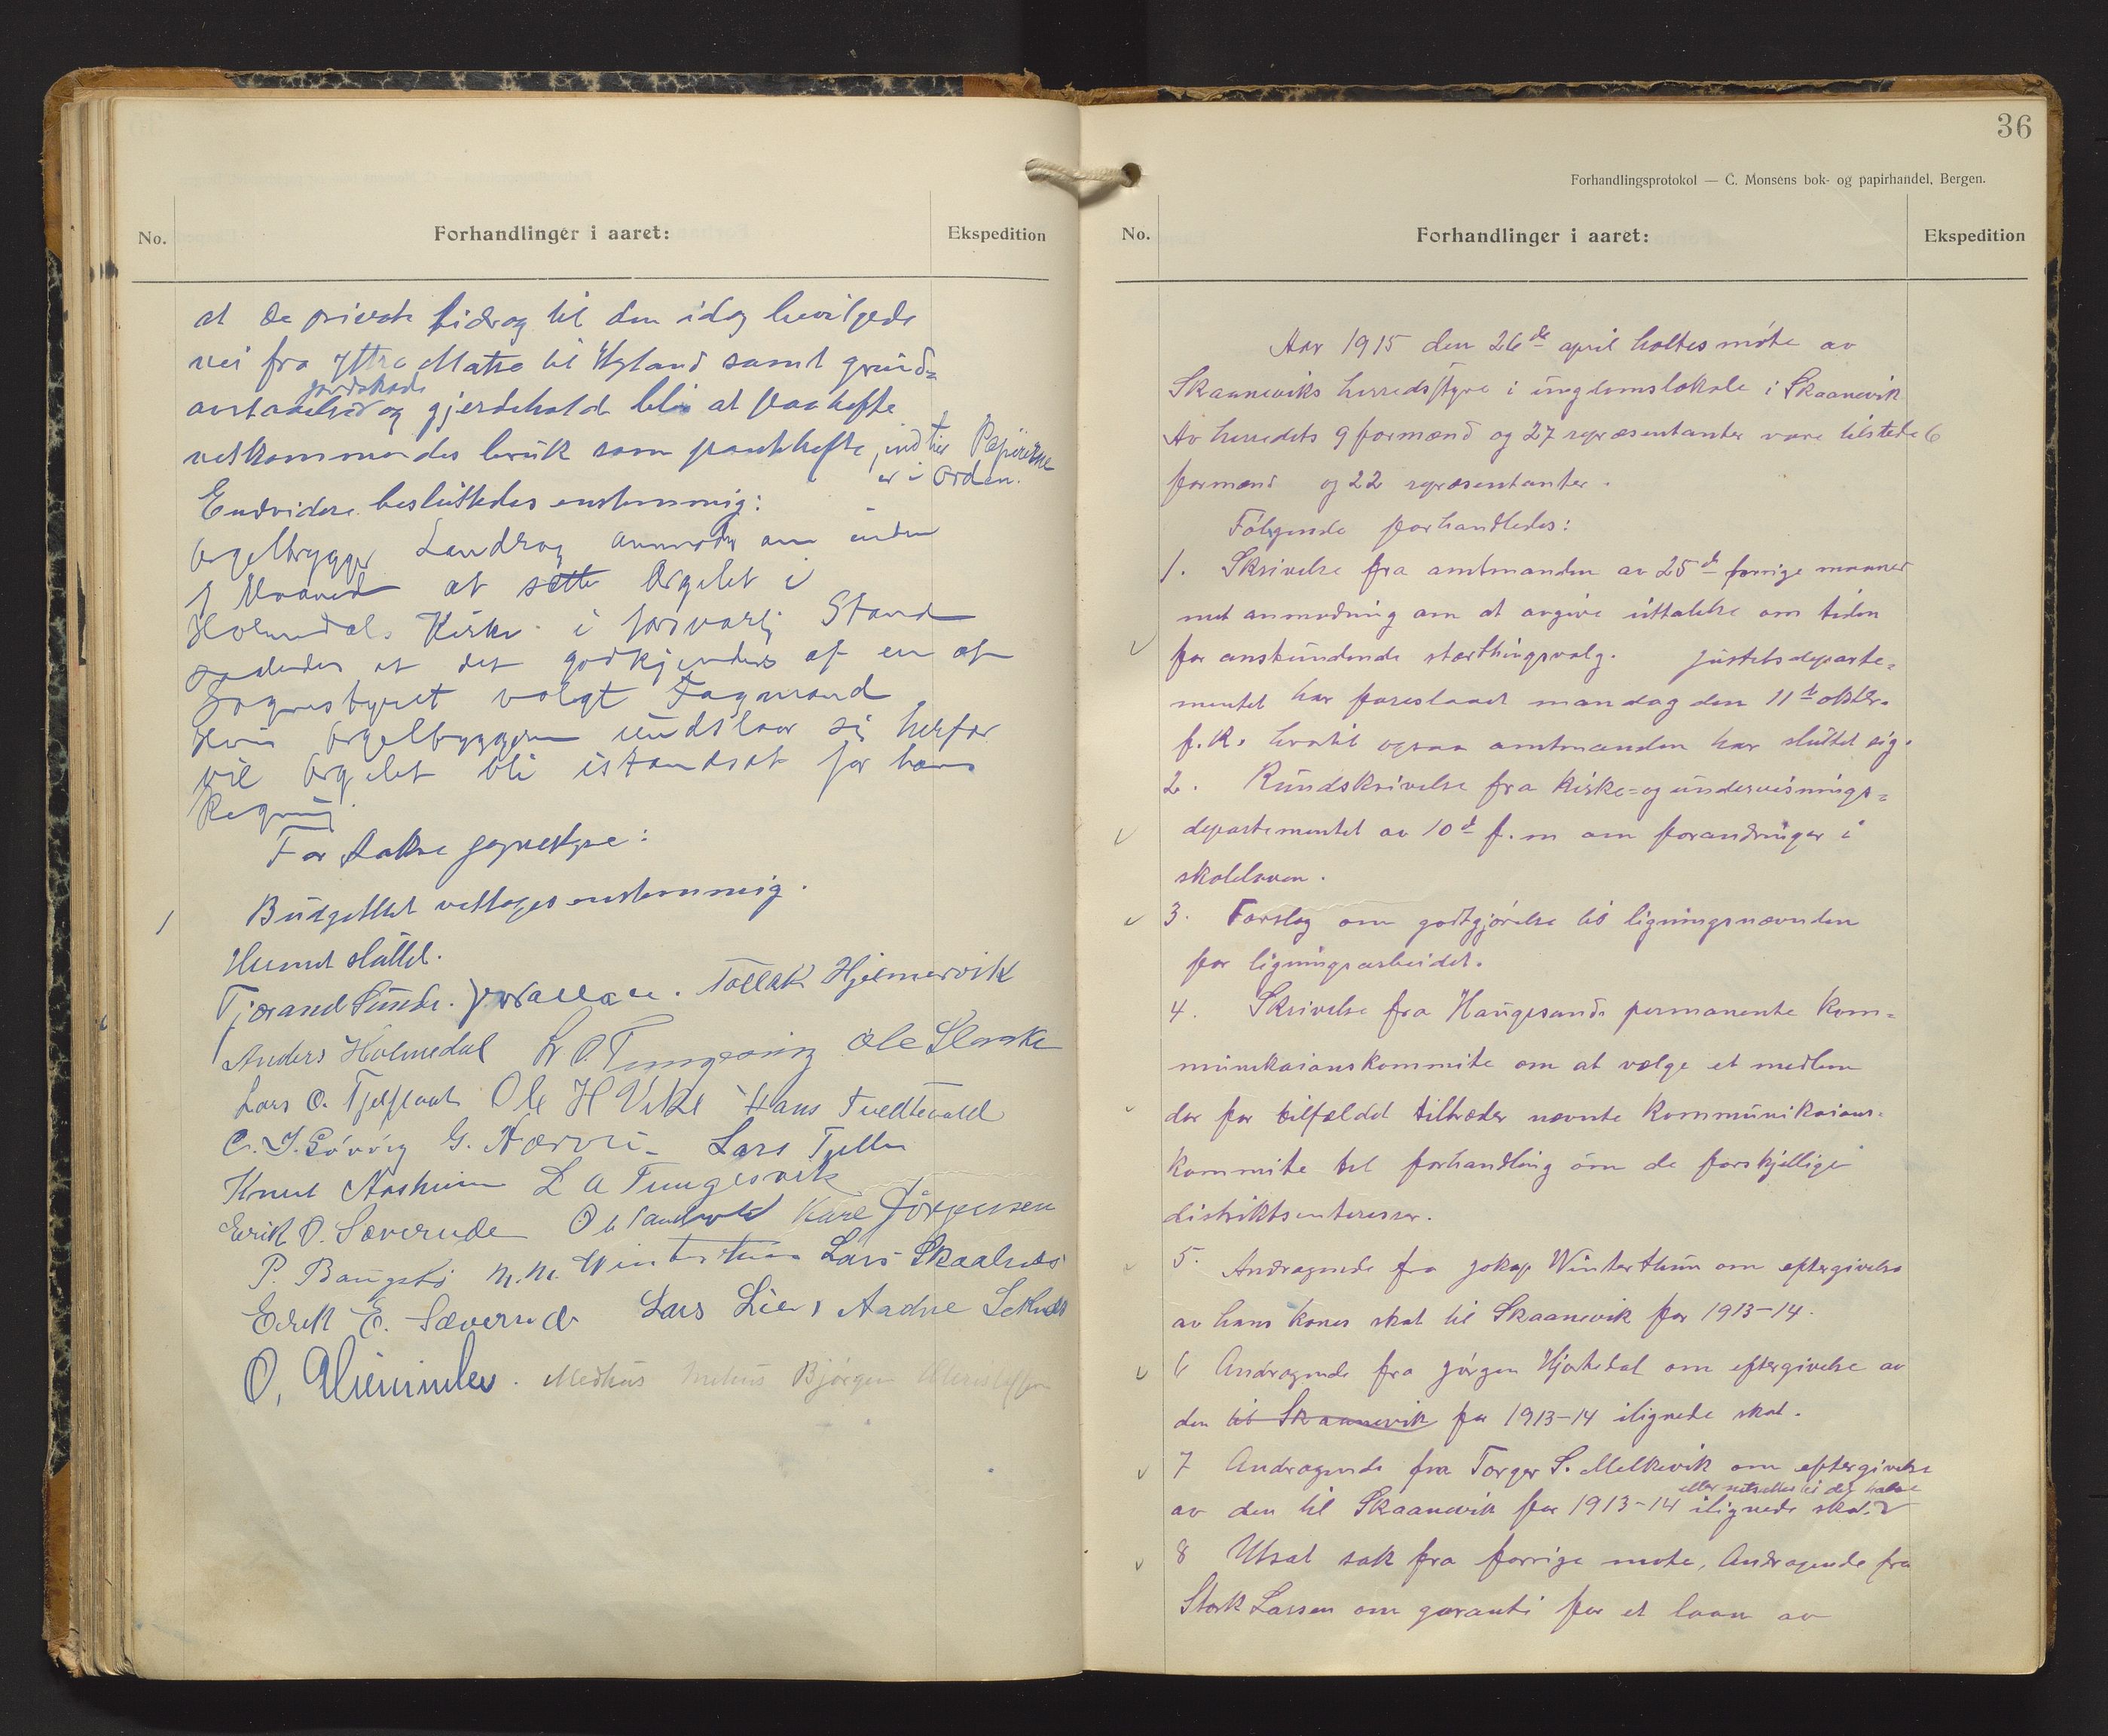 No.
Forhandlinger i aaret:
Ekspedition
at de private bidrag til den idag bevilgede
vei fra Yttre Matre til Nyland samt grund-
jordskade
avstaaelse og gjerdehold blir at paahefte
vedkommendes bruk som panthefte, indtil Papirerne
er i Orden.
Endvidere besluttedes enstemmig:
Orgelbygger Landrog anmodes om inden
1 Maaned at sette Orgelet i
Holmedals Kirke i forsvarlig Stand
saaledes at det godkjendes af en af
Sognestyret valgt Fagmand
Hvis Orgelbyggeren undslaar sig herfor
vil Orgelet bli istandsat for hans
Regning.
For Aakre sognestyre:
1
Budgettet vedtages enstemmig.
Hermed sluttet.
Tjerand Sunde. Tollak Hjelmervik
Anders Holmedal L O Tungesvig Ole
Lars O. Tjelflaat Ole H Vike Hans Tvedtevold
G. Nærvi Lars Tjelle
Knut Aasheim L A Tungesvik
Erik O. Sæverude O Karl Jørgensen
P. Baugstø M. M. Winterthun Lars Skaalnes
Erik E. Sæverud Lars Lien Aadne
O. Medhus Bjørgen
36
Forhandlingsprotokol — C. Monsens bok- og papirhandel, Bergen.
No.
Forhandlinger i aaret:
Ekspedition
Aar 1915 den 26de april holtes møte av
Skaaneviks herredsstyre i ungdomslokale i Skaanevik
Av herredets 9 formænd og 27 repræsentanter vare tilstede 6
formænd og 22 repræsentanter.
Følgende forhandledes:
1. Skrivelse fra amtmanden av 25de forrige maaned
med anmodning om at avgive uttalelse om tiden
for anstundende storthingsvalg. Justitsdeparte-
mentet har foreslaaet mandag den 11te oktbr.
f.k. hvortil ogsaa amtmanden har sluttet sig.
2. Rundskrivelse fra kirke- og undervisnings-
departementet av 10de f.m om forandringer i
skoleloven.
3. Forslag om godtgjørelse til ligningsnævnden
for ligningsarbeidet.
4. Skrivelse fra Haugesunds permanente kom-
munikaionskommite om at vælge et medlem
der for tilfældet tiltræder nævnte kommunikaions-
kommite til forhandling om de forskjellige
distriktsinteresser.
5. Andragende fra Jakop Winterthun om eftergivelse
av hans kones skat til Skaanevik for 1913-14.
6 Andragende fra Jørgen Hjortedal om eftergivelse av
den til Skaanevik for 1913-14 ilignede skat.
7 Andragende fra Torger S. Melkevik om eftergivelse
eller nedsættes til det halve
av den til Skaanevik for 1913-14 ilignede skat.
8 Utsat sak fra forrige møte, Andragende fra
Størk Larsen om garanti for et laan av